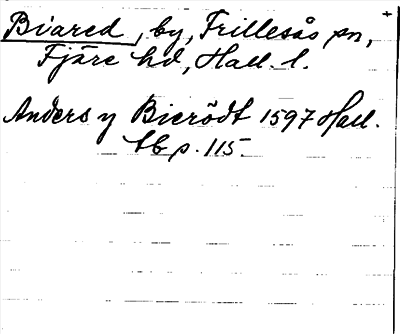 Biared, by, Frillesås sn,
Fjäre hd, Hall. l.
Anders y Bierödt 1597 Hall.
tb p. 115.